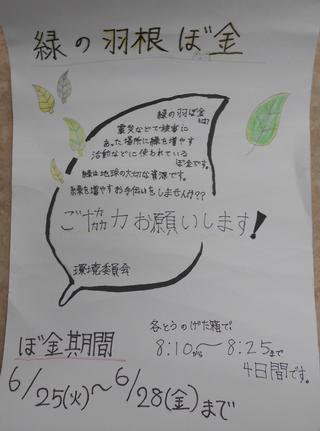 緑の羽根ぼ金
緑の羽ぼ金は?
震災などで被害に
あった場所に緑を増やす
活動などに使われている
ぼ金です。
緑は地球の大切な資源です。
緑を増やすお手伝いをしませんか??
ご協力お願いします!
環境委員会
ぼ金期間
6/25(火)〜6/28(金)まで
各とうのげた箱で、
8:10から〜8:25まで
4日間です。